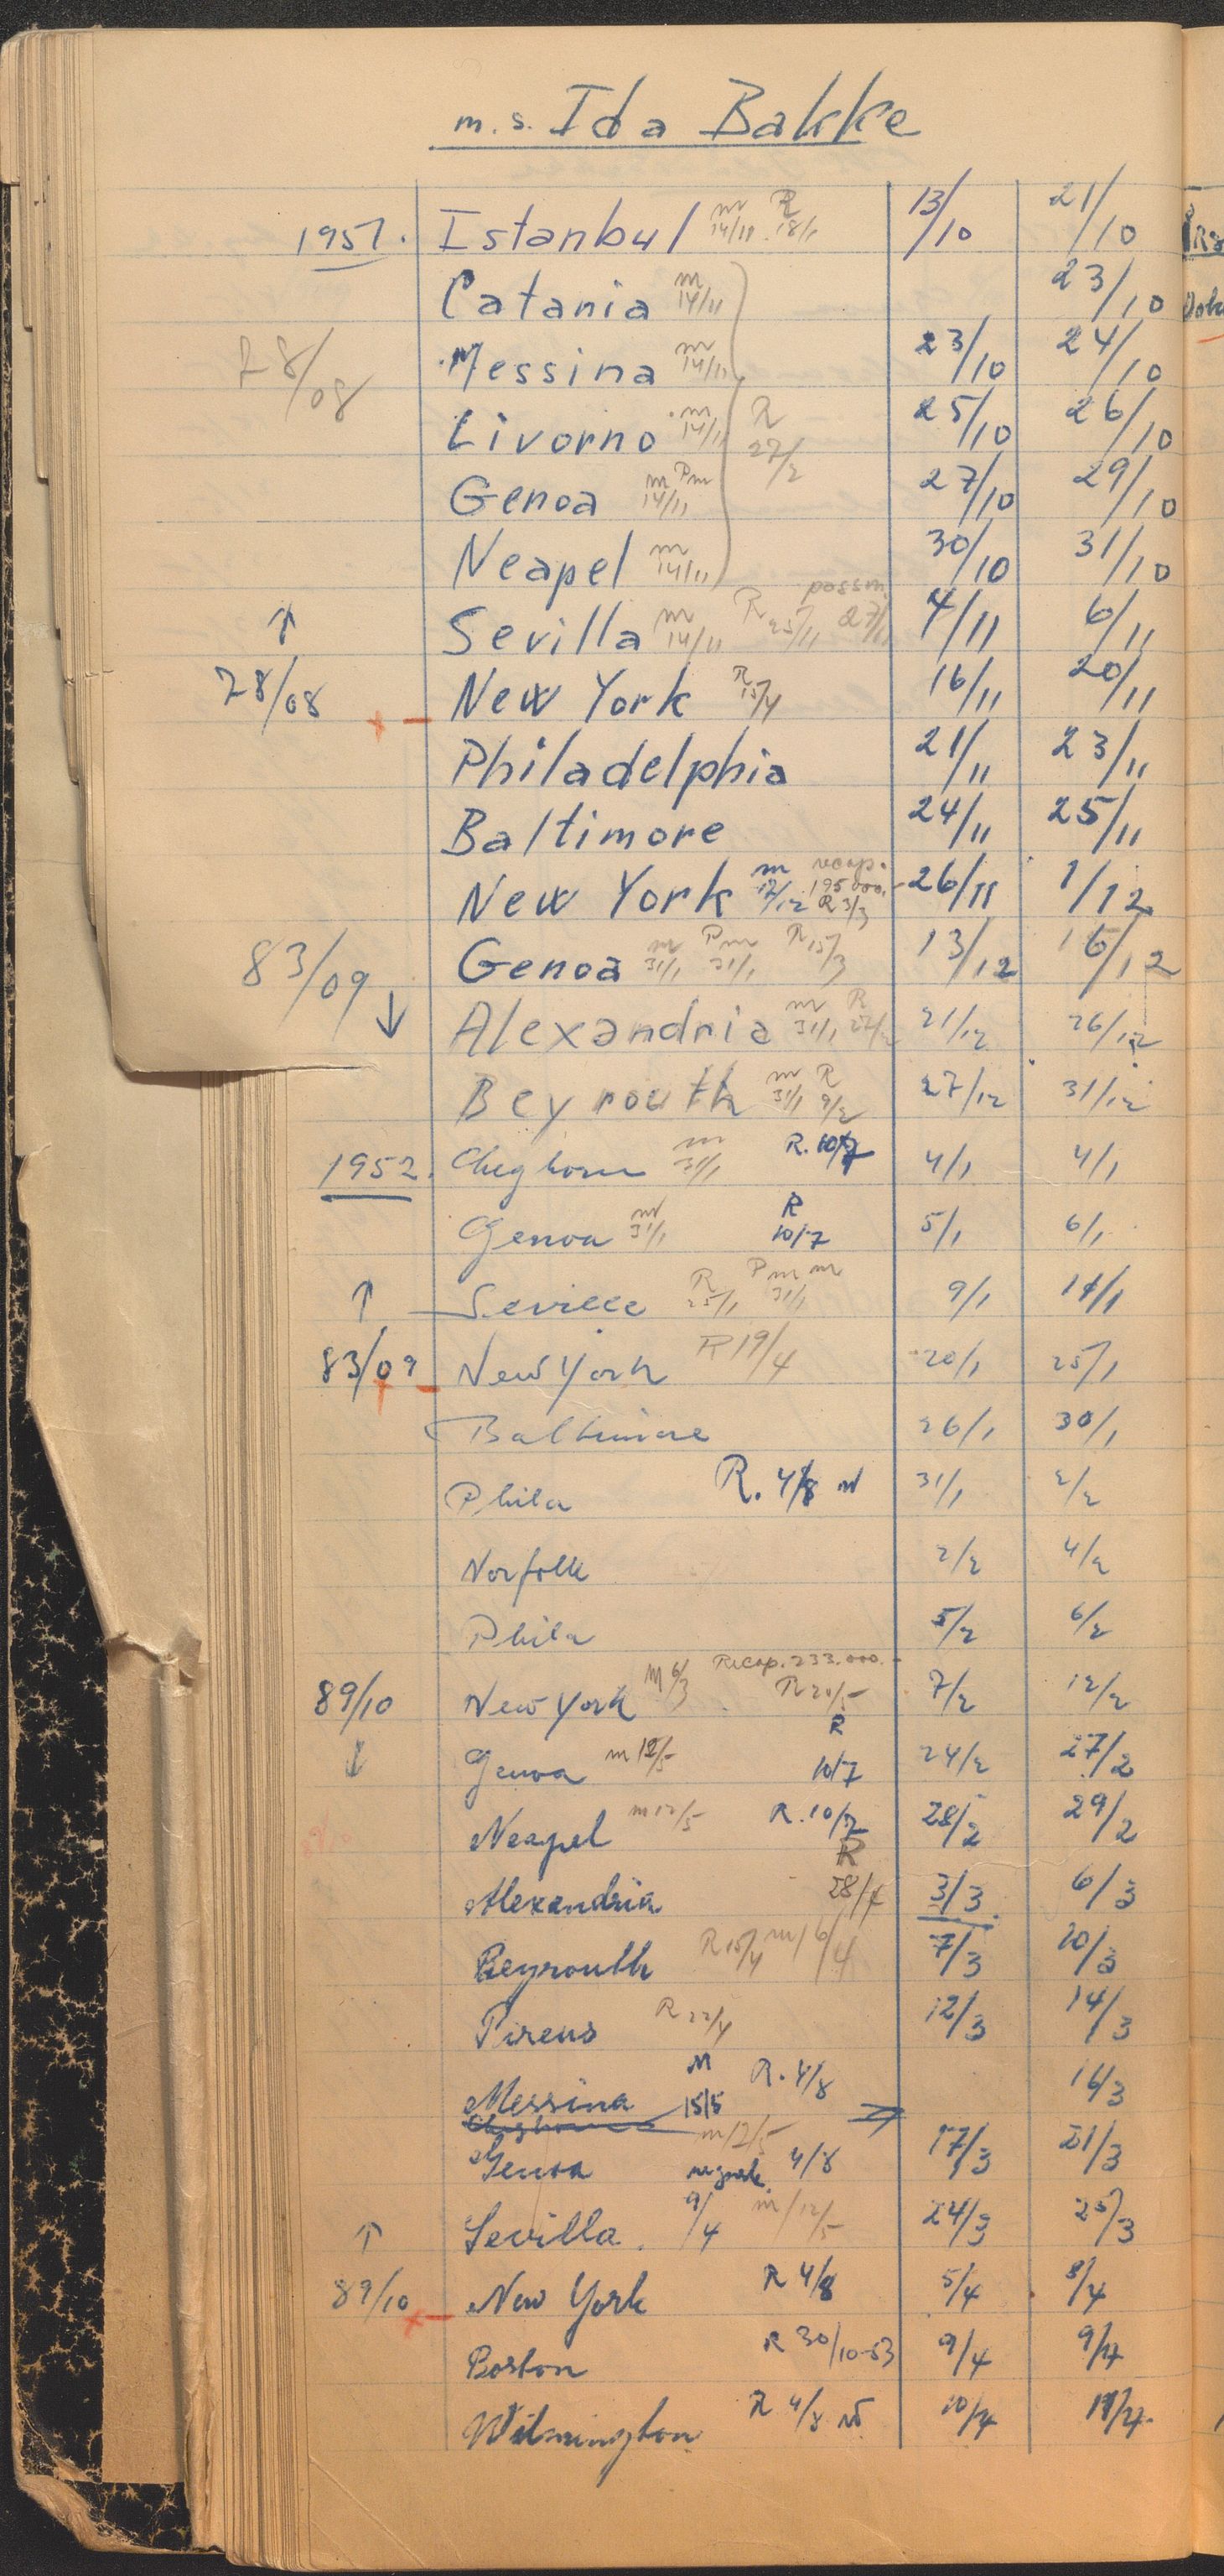 m. s. Ida Bakke
1951. Istanbul m 14/11 R 18/1 13/10 21/10
Catania m 14/11 23/10
28/08 Messina m 14/11 23/10 24/10
Livorno m 14/11 R 27/2 25/10 26/10
Genoa m Pm 14/11 27/10 29/10
Neapel m 14/11 30/10 31/10
↑ Sevilla m 14/11 R 25/11 27/11 4/11 6/11
28/08 + - New York R 15/4 16/11 20/11
Philadelphia 21/11 23/11
Baltimore 24/11 25/11
New York m 12/12 recap. 195.000.- R 3/3 26/11 1/12
83/09 Genoa m 31/1 Pm 31/1 R 15/3 13/12 16/12
↓ Alexandria m 31/1 R 27/2 21/12 26/12
Beyrouth m 31/1 R 9/2 27/12 31/12
1952. Leghorn m 31/1 R. 10/7 4/1 4/1
Genoa m 31/1 R 10/7 5/1 6/1
↑ Seville R 25/1 Pm m 31/1 9/1 11/1
83/09 + - New York R 19/4 20/1 25/1
Baltimore 26/1 30/1
Phila R. 4/8 31/1 2/2
Norfolk 2/2 4/2
Phila 5/2 6/2
89/10 New York M 6/3 Recap. 233.000.- R 20/5 7/2 12/2
↓ Genoa m 12/5 R 10/7 24/2 27/2
Neapel m 12/5 R. 10/7 28/2 29/2
Alexandria R 28/4 3/3 6/3
Beyrouth R 15/4 m 16/4 7/3 10/3
Pireus R 22/4 12/3 14/3
Messina M 15/5 R. 4/8 16/3
Genoa m 12/5 4/8 17/3 21/3
↑ Sevilla. 9/4 m 12/5 24/3 25/3
89/10 + - New York R 4/8 5/4 8/4
Boston R 30/10-53 9/4 9/4
Wilmington R 4/8 10/4 11/4